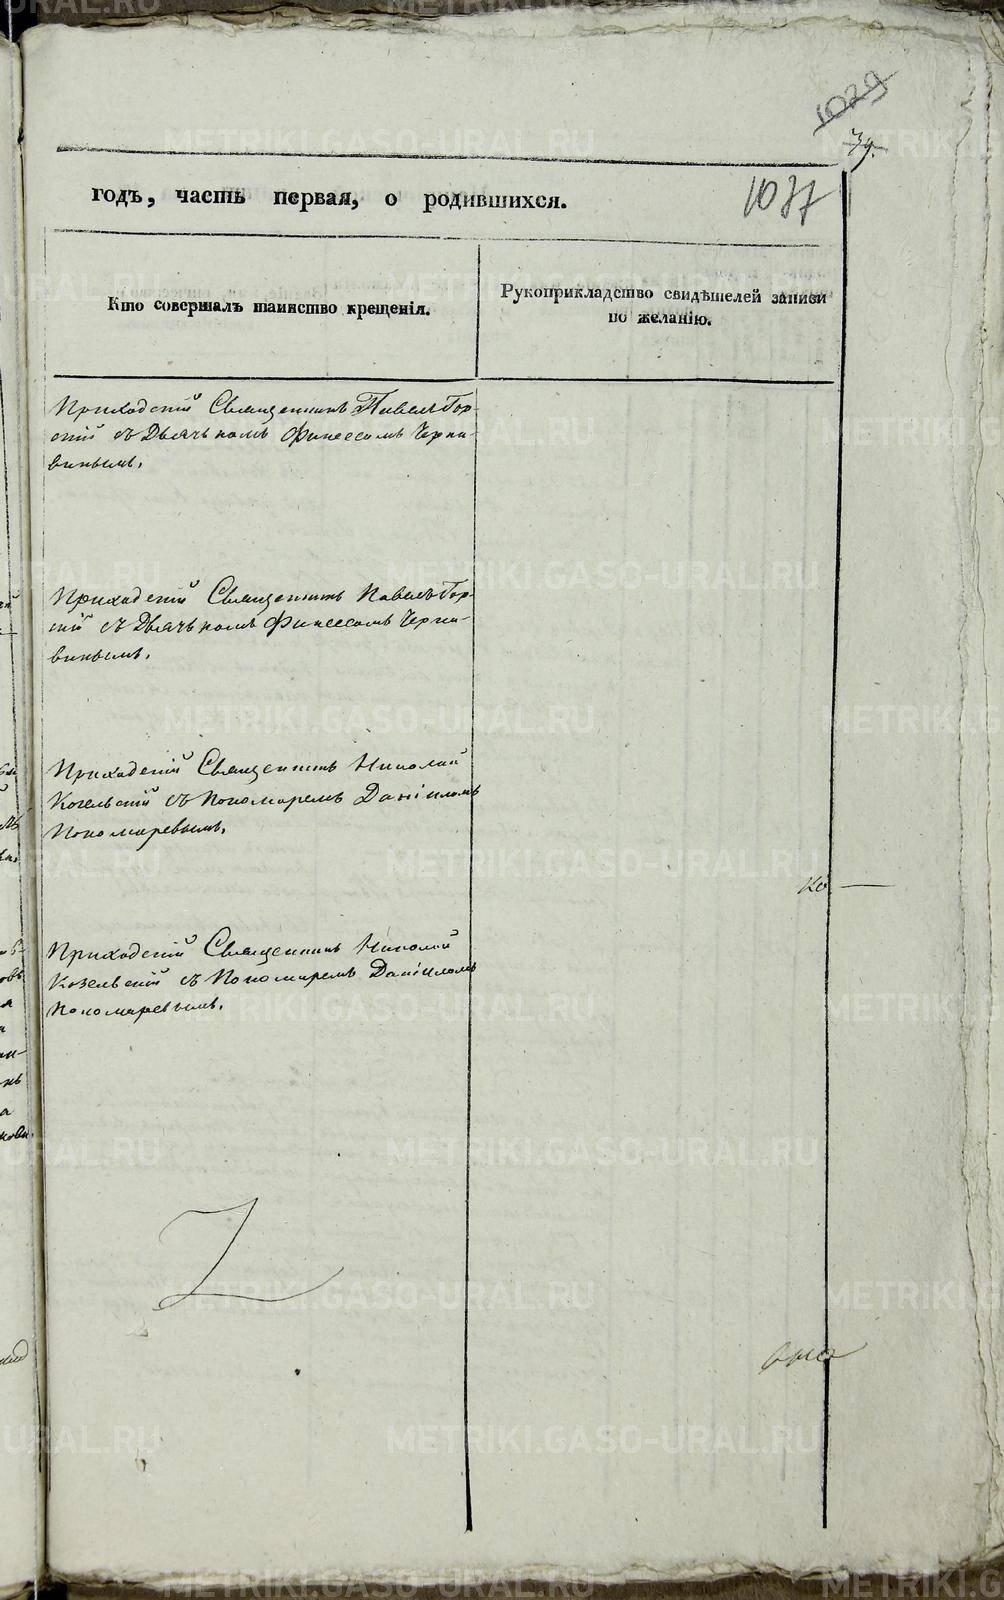 1029
39.
1037
годъ, часть первая, о родившихся.
Кто совершалъ таинство крещенія.
Рукоприкладство свидѣтелей записи
по желанію.
Приходскій Священникъ Павелъ Гор-
скій съ Дьячькомъ Финеесомъ Черни-
винымъ.
Приходскій Священникъ Павелъ Гор-
скій съ Дьячькомъ Финеесомъ Черни-
винымъ.
Приходскій Священникъ Николай
Козельскій съ Пономаремъ Даніиломъ
Пономаревымъ.
Ко
Приходскій Священникъ Николай
Козельскій съ Пономаремъ Даніиломъ
Пономаревымъ.
METRIKI.GASO-URAL.RU